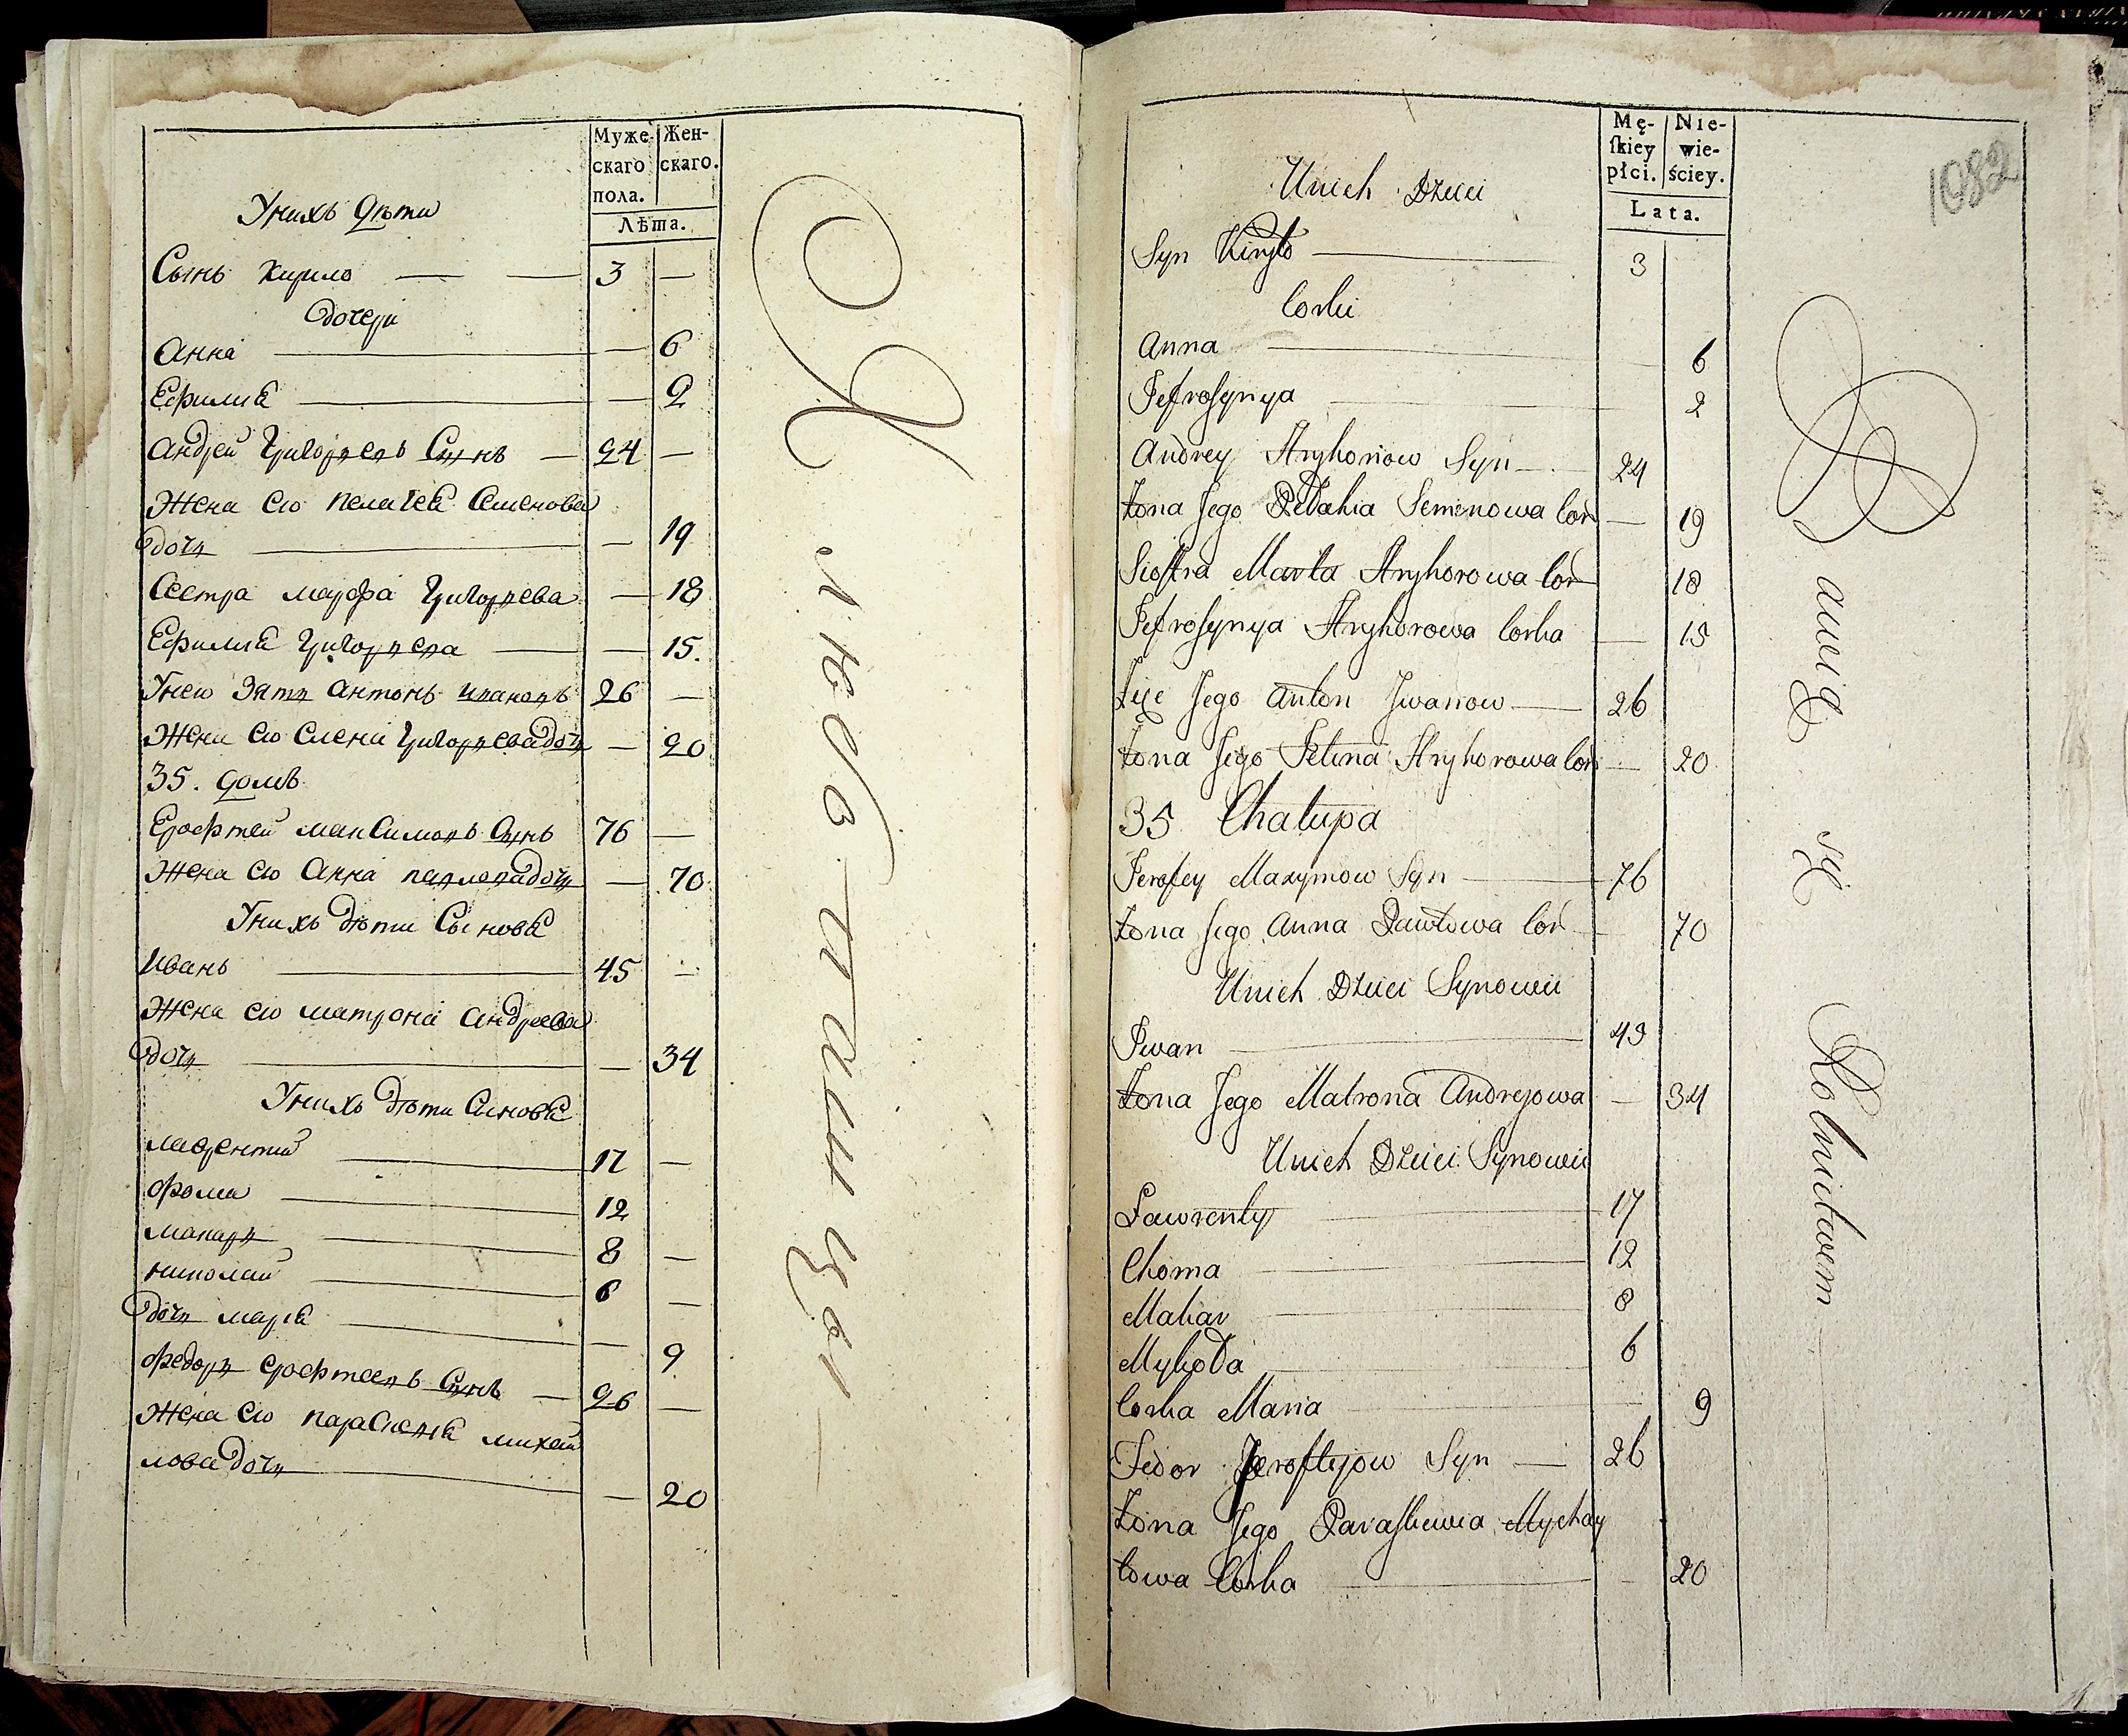 Муже-
скаго
пола.
Жен-
скаго.
Лѣта.
Унихъ Дѣти
Сынъ Кирило — — 3 —
Дочери
Анна — — 6
Ефимия — — 2
Андрей Григорьевъ Сынъ — 24 —
Жена его Пелагея Семенова
Дочь — — 19
Сестра Марфа Григорьева — 18
Ефимия Григорьева — — 15.
Унего Зять Антонъ Ивановъ 26 —
Жена его Елена Григорьева дочь — 20
35. домъ
Ерофтей Максимовъ Сынъ 76 —
Жена его Анна Павлова дочь — 70
Унихъ Дѣти Сыновя
Иванъ — 45 —
Жена его Матрона Андреева
Дочь — — 34
Унихъ Дѣти Синовя
Лаврентий — 17 —
Фома — 12
Макаръ — 8 —
Николай — 6 —
Дочь Мария — — 9
Федоръ Ерофтеевъ Сынъ — 26 —
Жена его Параскевия Михай
лова Дочь — — 20
Mę-
ſkiey
płci.
Nie-
wie-
ściey.
Lata.
1082
Unich Dzieci
Syn Kiryło — 3
Corki
Anna — 6
Jefrosynya — 2
Andrey Hryhoriow Syn — 24
Żona Jego Pełahia Semenowa Cor — 19
Siostra Marta Hryhorowa Cor 18
Jefrosynya Hryhorowa Corka — 15
Zięc Jego Anton Jwanow — 26
Żona Jego Helena Hryhorowa Cor — 20
35 Chałupa
Jerofey Maxymow Syn — 76
Żona Jego Anna Pawłowa Cor — 70
Unich Dzieci Synowie
Jwan — 43
Żona Jego Matrona Andrejowa — 34
Unich Dzieci Synowie
Ławrenty — 17
Choma — 12
Makar — 8
Mykoła — 6
Corka Maria — 9
Fedor Jeroftejow Syn — 26
Żona Jego Paraskewia Mychay
łowa Corka — 20